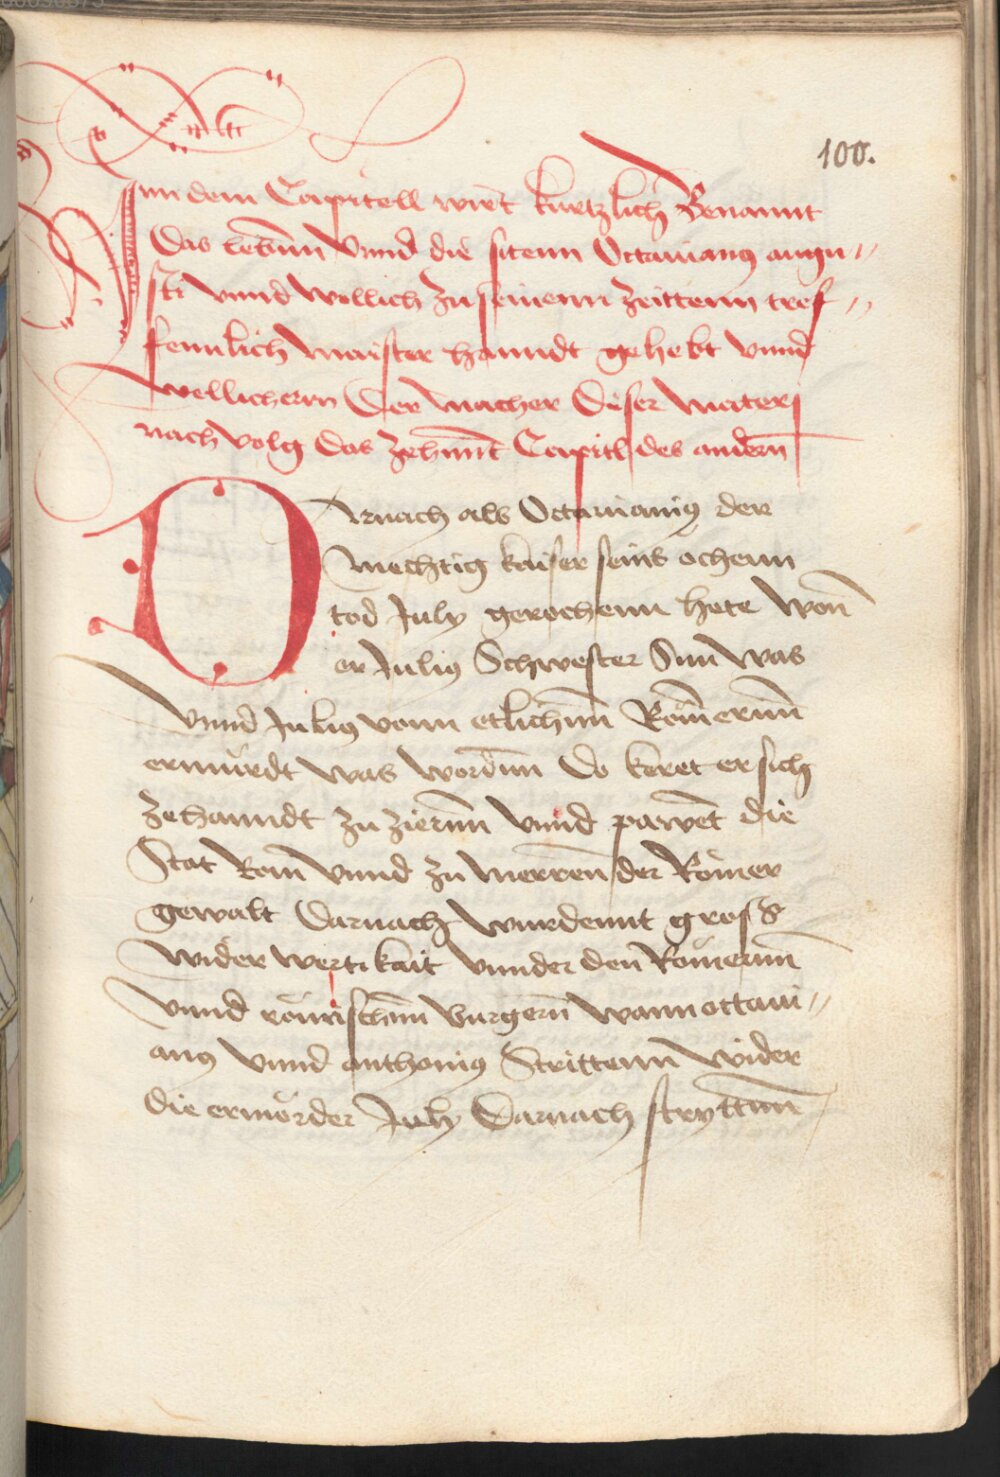 100.
Inn dem Capitell wirt kurtzlich Benannt
Das lebenn vnnd die sitenn Octauianus augu〃
sti vnnd wellich zu seinenn zeittenn tref〃
fennlich maister hanndt gehebt vnnd
wellichenn Der macher diser materj
nach volg Das zehennt Capitl des andern
Darnach als Octauianus der
mechtig kaiser seins ochenn
tod July gerochenn hete wenn
er Julius Schwester Sun was
vnnd Julius vonn etlichenn Römerenn
ermürdt was wordenn Do keret er sich
zehanndt zu zierenn vnnd pawet die
Stat Rom vnnd zu merren der Römer
gewalt Darnach wurdennt gross
wider wertikait vnnder den Römerenn
vnnd römischenn burgern wann octaui〃
anus vnnd anthonius Strittenn wider
die ermörder July Darnach stryttenn